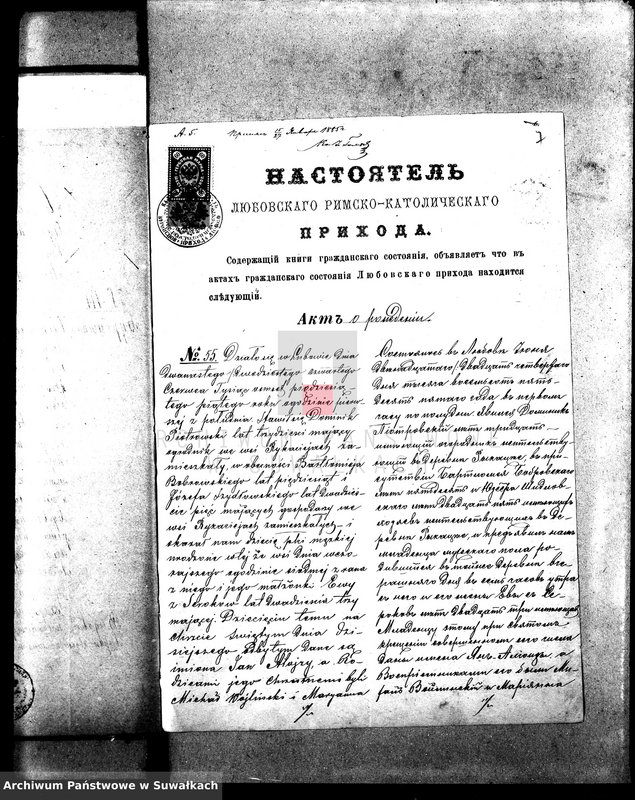 А. 5.
Января 1885 г.
НАСТОЯТЕЛЬ
ЛЮБОВСКАГО РИМСКО-КАТОЛИЧЕСКАГО
ПРИХОДА.
Содержащій книги гражданскаго состоянія, объявляетъ что въ
актахъ гражданскаго состоянія Любовскаго прихода находится
слѣдующій.
Актъ о рожденіи.
№. 55. Działo się w Lubowie Dnia
Dwunastego /Dwudziestego czwartego
Czerwca Tysiąc osmset pięćdziesią-
tego piątego roku o godzinie pierw-
szej z południa Stawił się Dominik
Piotrowski lat trzydzieści mający
ogrodnik we wsi Rykaciejach za-
mieszkały, w obecności Bartłomieja
Bobrowskiego lat pięćdziesiąt i
Józefa Szydłowskiego lat Dwadzie-
ścia pięć mających gospodarzy we
wsi Rykaciejach zamieszkałych- i
okazał nam dziecię płci męzkiej
urodzone w tej że wsi Dnia wczo-
rajszego o godzinie siódmej z rana
z niego i jego małżonki Ewy
z Seroków lat Dwadzieścia trzy
mającej. Dziecięciu temu na
Chrzcie świętym Dnia dzi-
siejszego odbytym Dane są
imiona Jan Alojzy, a Ro-
dzicami jego Chrzestnemi byli
Michał Wojliński i Maryanna
Состоялось въ Любовѣ Іюня
Двѣнадцатаго /Двадцать четвертаго
Дня тысяча восемьсотъ пять-
десятъ пятаго года въ первомъ
часу по полудни явился Доминикъ
Піотровскій лѣтъ тридцать
имѣющій огородникъ жительству-
ющій въ деревнѣ въ при-
сутствіи Бартломея Бобровскаго
лѣтъ пятдесятъ и Юзефа Шидлов-
скаго лѣтъ Двадцать пять имѣющихъ
хозяевъ жительствующихъ въ Де-
ревнѣ и предъявилъ намъ
младенца мужескаго пола ро-
дившагося въ той же Деревнѣ вче-
рашняго Дня въ семь часовъ утра
съ него и его жены Евы съ Се-
роковъ лѣтъ Двадцать три имѣющей
Младенцу этому при святомъ
крещеніи совершенномъ его числа
Даны имена Янъ Алоизъ, а
Воспріемниками его были Ми-
халъ Войлинскій и Маріанна
Archiwum Państwowe w Suwałkach